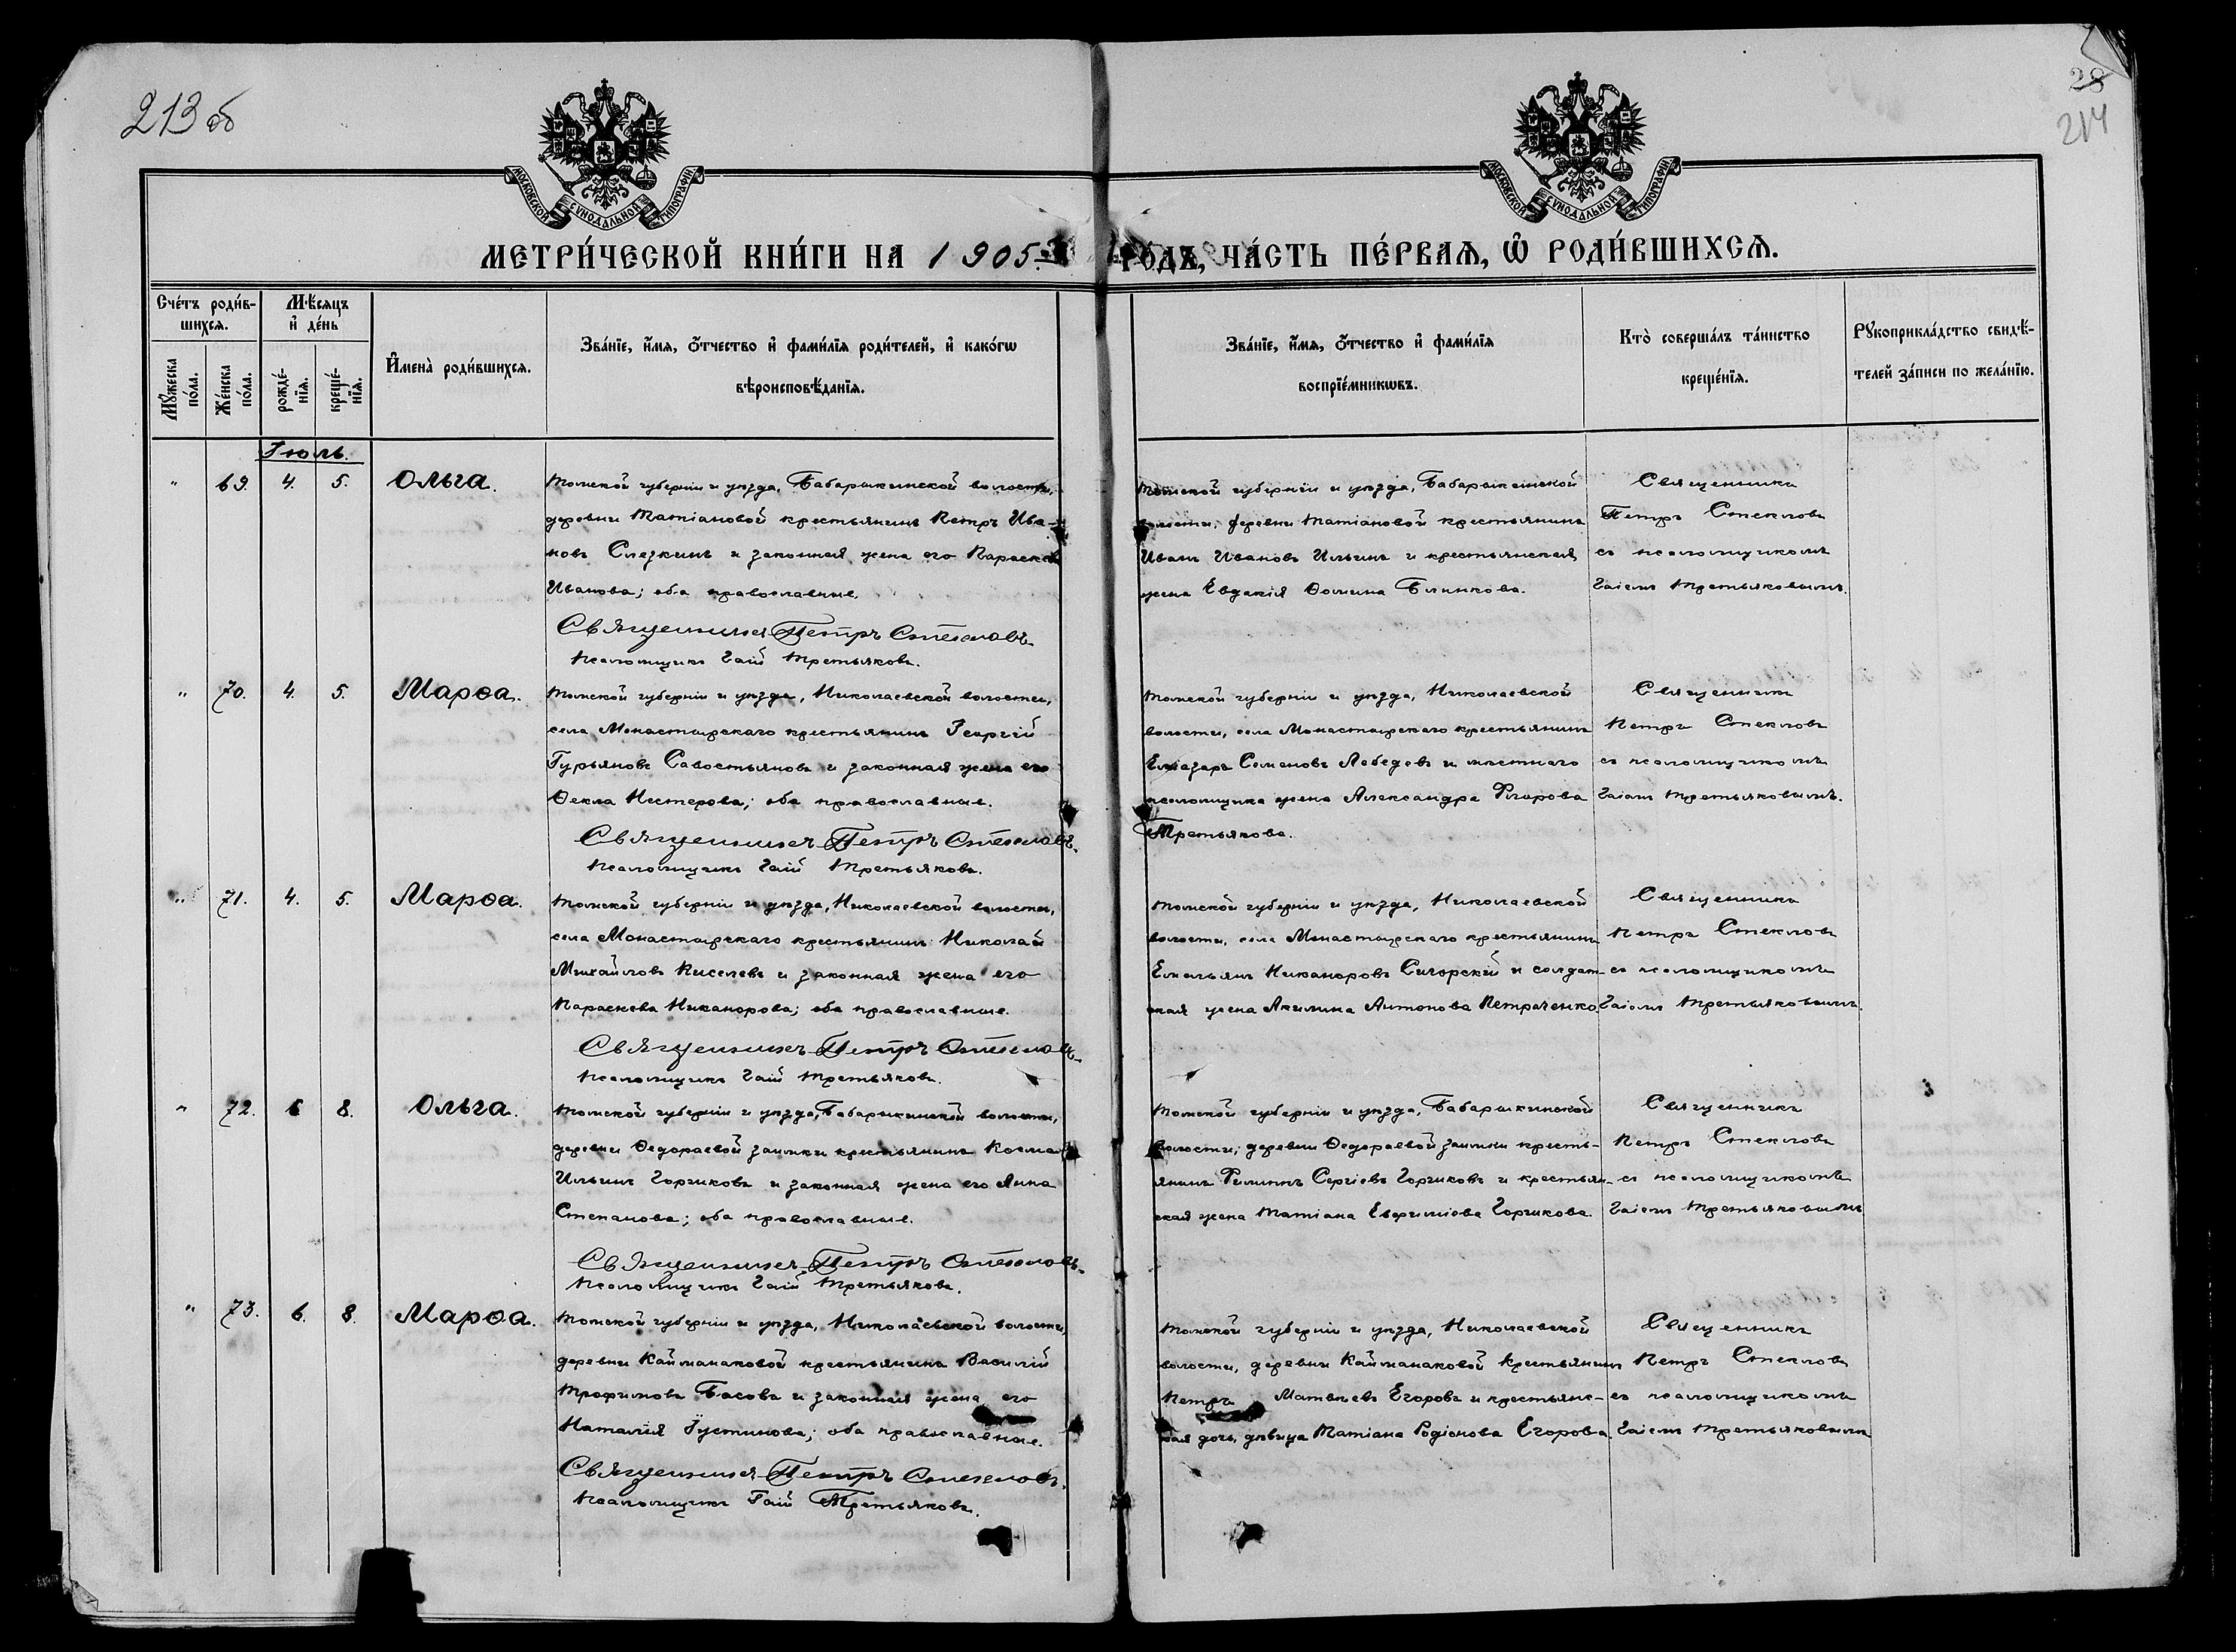 213 об
28
214
МОСКОВСКОЙ СѴНОДАЛЬНОЙ ТИПОГРАФІИ
МОСКОВСКОЙ СѴНОДАЛЬНОЙ ТИПОГРАФІИ
МЕТРИ́ЧЕСКОЙ КНИ́ГИ НА 1905 й ГО́ДЪ, ЧА́СТЬ ПЕ́РВАѦ, Ѽ РОДИ́ВШИХСѦ.
Сче́тъ роди́в-
шихсѧ.
Мѣ́сѧцъ
и҆ де́нь
Мꙋ́жеска по́ла.
Же́нска по́ла.
рожде́-
нїѧ.
креще́-
нїѧ.
И҆мена̀ роди́вшихсѧ.
Зва́нїе, и҆́мѧ, ѻ҆́тчество и҆ фами́лїѧ роди́телей, и҆ како́гѡ
вѣроисповѣ́данїѧ.
Зва́нїе, и҆́мѧ, ѻ҆́тчество и҆ фами́лїѧ
воспрїе́мникѡвъ.
Кто̀ соверша́лъ та́инство
креще́нїѧ.
Рꙋкоприкла́дство свидѣ́-
телей за́писи по жела́нїю.
Іюль.
" 69. 4. 5. Ольга.
Томской губерніи и уѣзда, Бабарыкинской волости,
деревни Татіановой крестьянинъ Петръ Ива-
новъ Слезкинъ и законная жена его Параскева
Иванова; оба православные.
Священникъ Петръ Стекловъ
Псаломщикъ Гаій Третьяковъ.
Томской губерніи и уѣзда, Бабарыкинской
волости, деревни Татіановой крестьянинъ
Иванъ Ивановъ Ильинъ и крестьянская
жена Евдокія Ѳомина Блинкова.
Священникъ
Петръ Стекловъ
съ псаломщикомъ
Гаіемъ Третьяковымъ.
" 70. 4. 5. Марѳа.
Томской губерніи и уѣзда, Николаевской волости,
села Монастырскаго крестьянинъ Георгій
Гурьяновъ Савостьяновъ и законная жена его
Ѳекла Нестерова; оба православные.
Священникъ Петръ Стекловъ.
Псаломщикъ Гаій Третьяковъ.
Томской губерніи и уѣзда, Николаевской
волости, села Монастырскаго крестьянинъ
Елеазаръ Семеновъ Лебедевъ и мѣстнаго
псаломщика жена Александра Флорова
Третьякова.
Священникъ
Петръ Стекловъ
съ псаломщикомъ
Гаіемъ Третьяковымъ.
" 71. 4. 5. Марѳа.
Томской губерніи и уѣзда, Николаевской волости,
села Монастырскаго крестьянинъ Николай
Михайловъ Киселевъ и законная жена его
Параскева Никанорова; оба православные.
Священникъ Петръ Стекловъ.
Псаломщикъ Гаій Третьяковъ.
Томской губерніи и уѣзда, Николаевской
волости, села Монастырскаго крестьянинъ
Емельянъ Никаноровъ Сигорскій и солдат-
ская жена Акилина Антонова Петраченко
Священникъ
Петръ Стекловъ
съ псаломщикомъ
Гаіемъ Третьяковымъ.
" 72. 6 8. Ольга.
Томской губерніи и уѣзда, Бабарыкинской волости,
деревни Ѳедораевой заимки крестьянинъ Косма
Ильинъ Горчиковъ и законная жена его Анна
Степанова; оба православные.
Священникъ Петръ Стекловъ.
Псаломщикъ Гаій Третьяковъ.
Томской губерніи и уѣзда, Бабарыкинской
волости; деревни Ѳедораевой заимки кресть-
янинъ Филиппъ Сергіевъ Горчиковъ и крестьян-
ская жена Татіана Евфиміева Горчикова.
Священникъ
Петръ Стекловъ
съ псаломщикомъ
Гаіемъ Третьяковымъ
" 73. 6. 8. Марѳа.
Томской губерніи и уѣзда, Николаевской волости,
деревни Кайманаковой крестьянинъ Василій
Трофимовъ Басовъ и законная жена его
Наталія Іустинова; оба православные.
Священникъ Петръ Стекловъ.
Псаломщикъ Гаій Третьяковъ.
Томской губерніи и уѣзда, Николаевской
волости, деревни Кайманаковой крестьянинъ
Петръ Матвѣевъ Егоровъ и крестьянс-
кая дочь, дѣвица Татіана Родіонова Егорова.
Священникъ
Петръ Стекловъ
съ псаломщикомъ
Гаіемъ Третьяковымъ